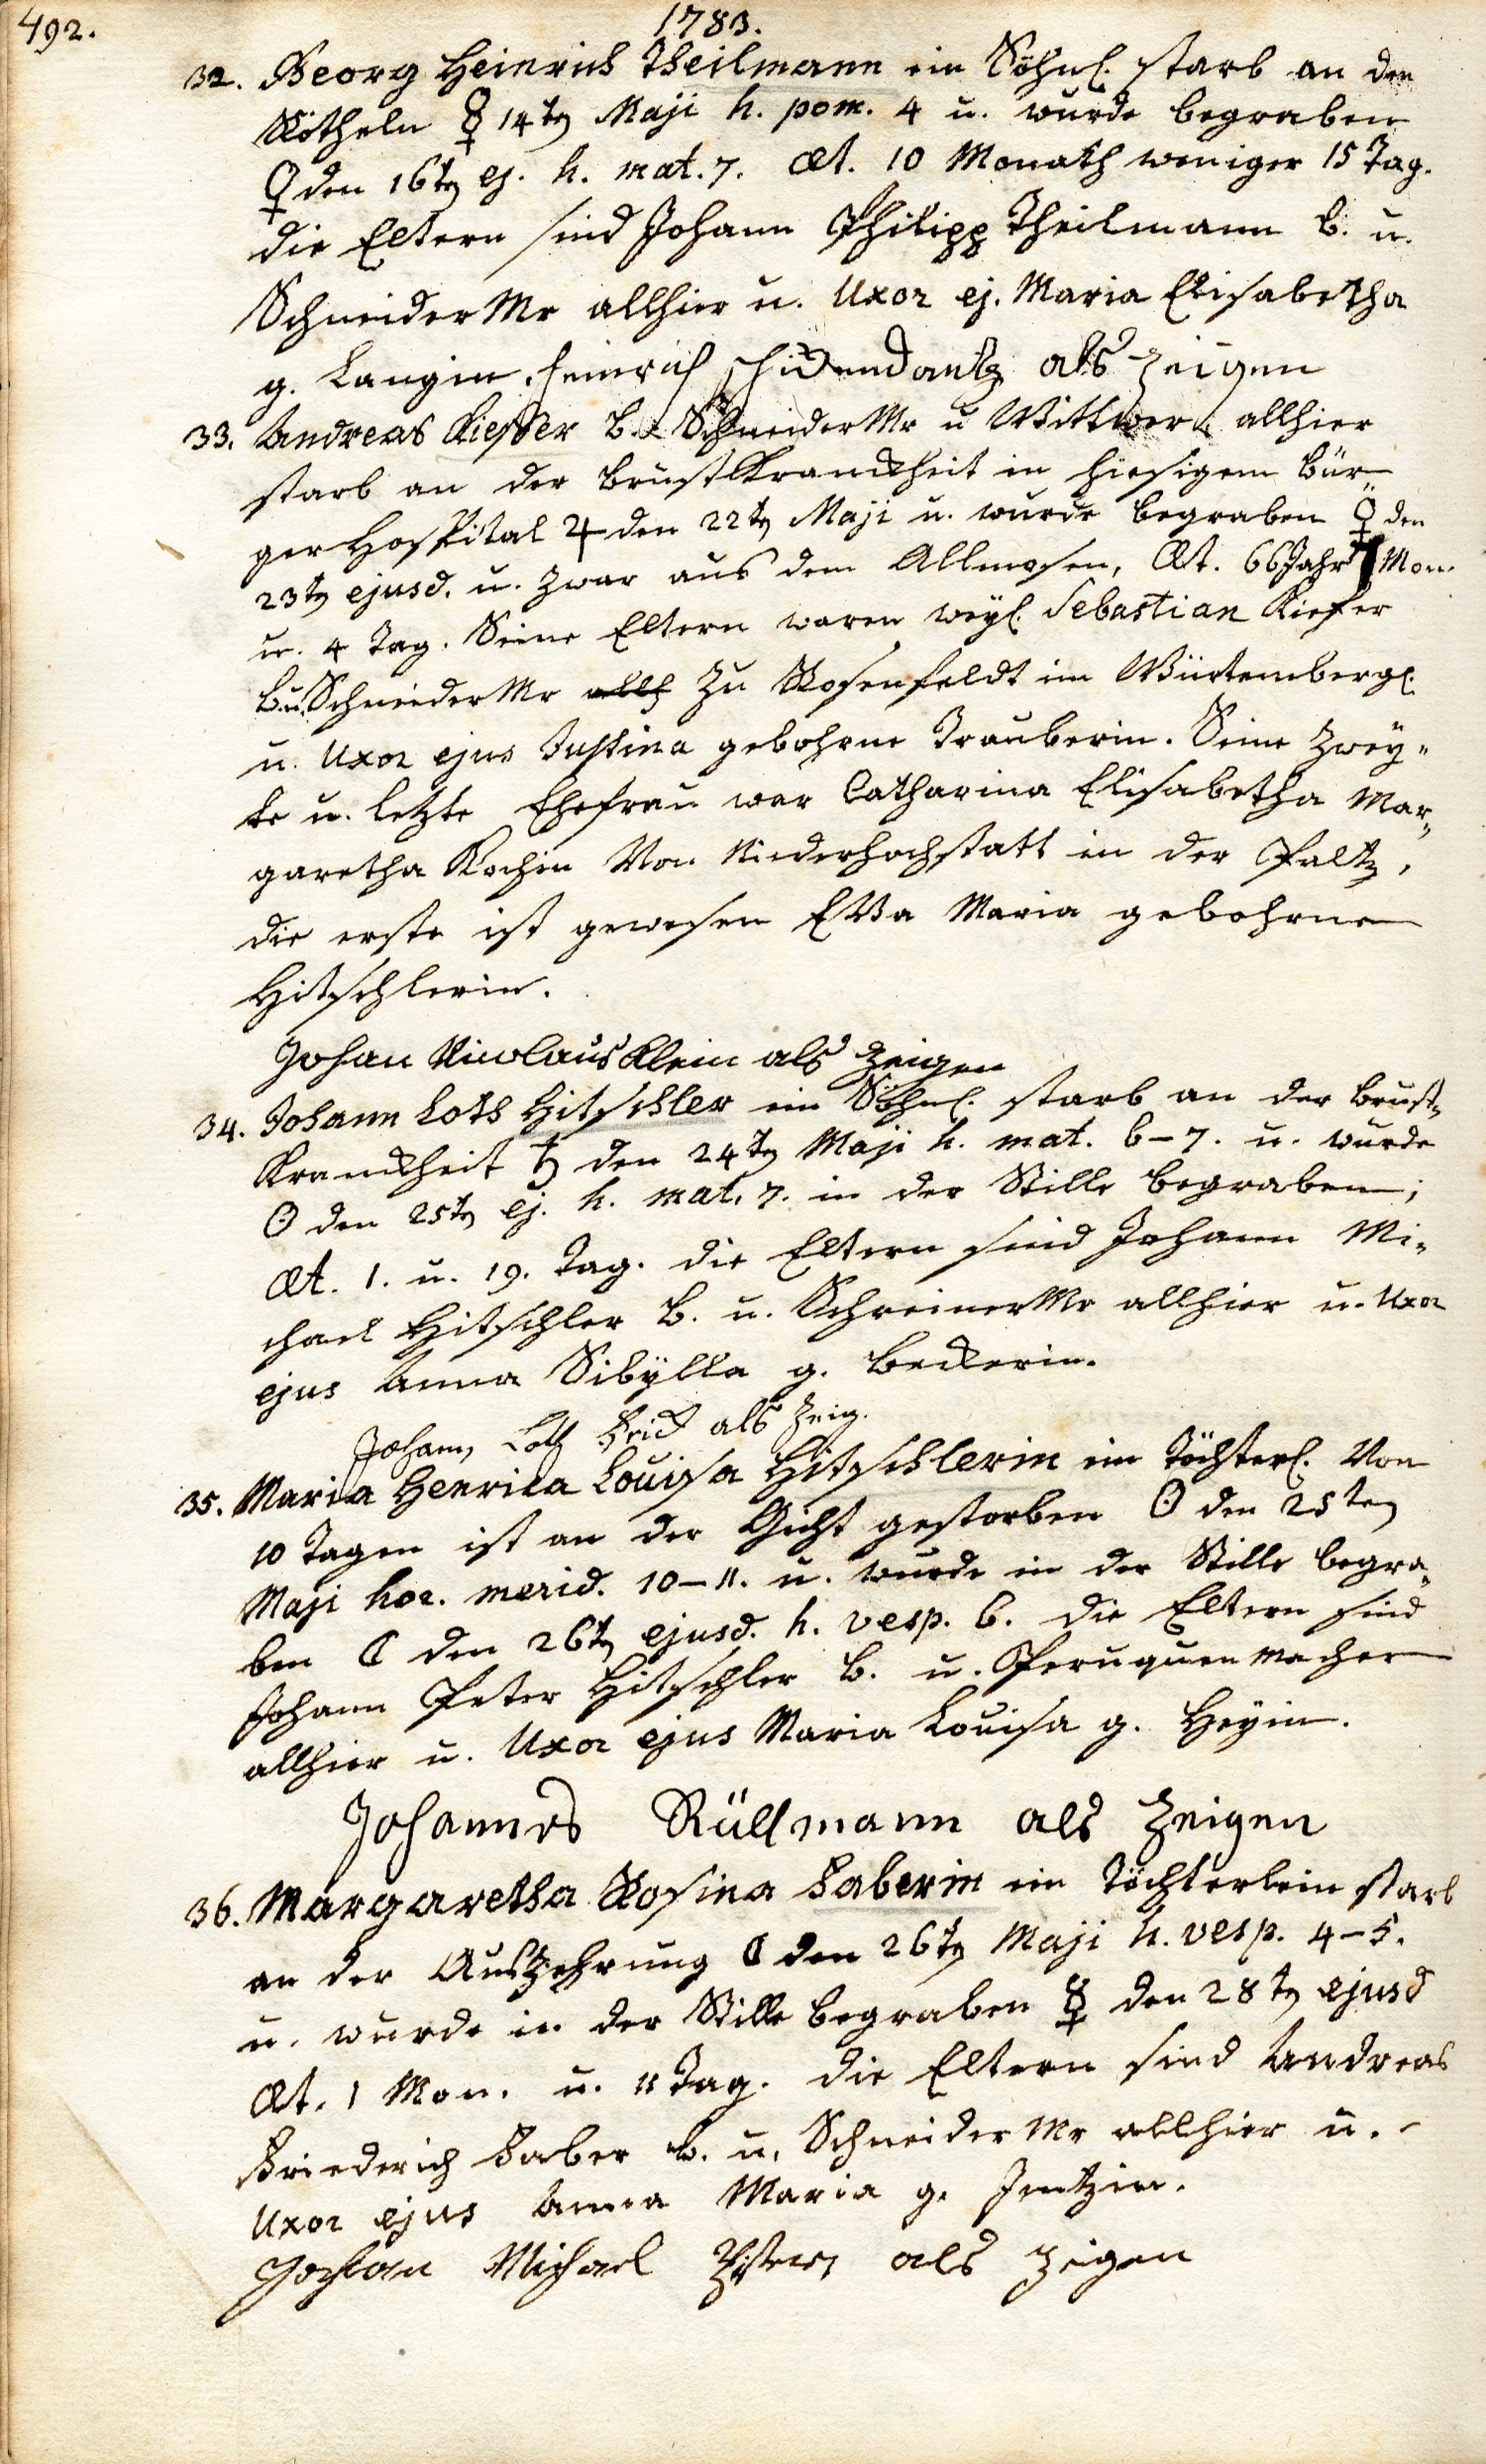 492.
1783.
32. Georg Heinrich Theilmann ein Söhnl. starb an den
Rötheln ☿ 14tn Maji h. pom. 4 u. wurde begraben
♀ den 16tn ej. h. mat. 7. Æt. 10 Monath weniger 15 Tag.
die Eltern sind Johann Philipp Theilmann B. u.
Schneider Mr allhier u. Uxor ej. Maria Elisabetha
g. Langin. Heinrich als Zeigen
33. Andreas Kieffer B. u. Schneider Mr u Wittwer allhier
starb an der Brustkranckheit in hiesigem Bür-
ger Hospital ♃ den 22tn Maji u. wurde begraben ♀ den
23tn ejusd. u. zwar aus dem Allmosen, Æt. 66 Jahr 1 Mon.
u. 4 Tag. Seine Eltern waren weyl. Sebastian Kiefer
B. u. Schneider Mr allh zu Rosenfeldt im Würtembergl.
u. Uxor ejus Justina gebohrne Trauberin. Seine zwey-
te u. letzte Ehefrau war Catharina Elisabetha Mar-
garetha Kochin Von Niederhochstatt in der Pfaltz,
die erste ist gewesen EVa Maria gebohrne
Hitschlerin.
Johan Nicolaus Klein als Zeigen
34. Johann Loth Hitschler ein Söhnl. starb an der Brust-
Kranckheit ♄ den 24tn Maji h. mat. 6-7. u. wurde
☉ den 25tn ej. h. mat. 7. in der Stille begraben;
Æt. 1. u. 19. Tag. die Eltern sind Johann Mi-
chael Hitschler B. u. Schreiner Mr allhier u. Uxor
ejus Anna Sibÿlla g. Beckerin.
Johann Loth Frick als Zeig.
35. Maria Henrica Louisa Hitschlerin ein Töchterl. Von
10 Tagen ist an der Gicht gestorben ☉ den 25ten
Maji hor. merid. 10-11. u. wurde in der Stille begra-
ben ☾ den 26tn ejusd. h. vesp. 6. die Eltern sind
Johann Peter Hitschler B. u. Peruquenmacher
allhier u. Uxor ejus Maria Louisa g. Heyin.
Johannes Rüllmann als Zeigen
36. Margaretha Rosina Faberin ein Töchterlein starb
an der Auszehrung ☾ den 26tn Maji h. vesp. 4-5.
u. wurde in der Stille begraben ☿ den 28tn ejusd
Æt. 1 Mon. u. 11 Tag. die Eltern sind Andreas
Friederich Faber B. u. Schneider Mr allhier u.
Uxor ejus Anna Maria g. Jentzin.
Johan Michael als Zeigen